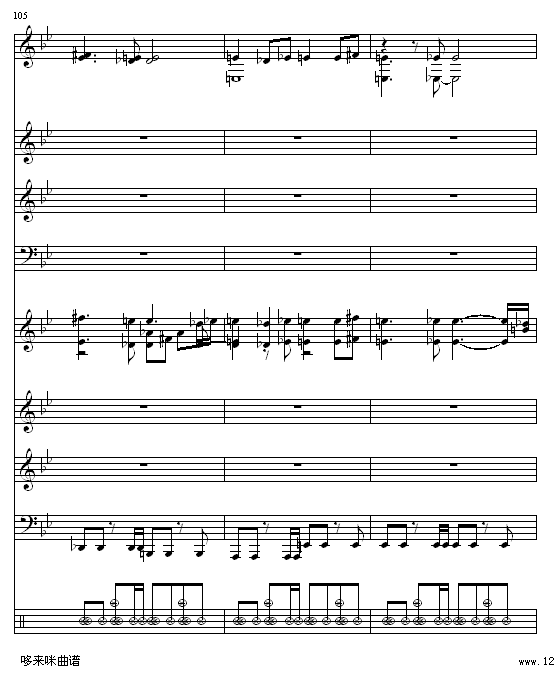 105
哆来咪曲谱
www.12